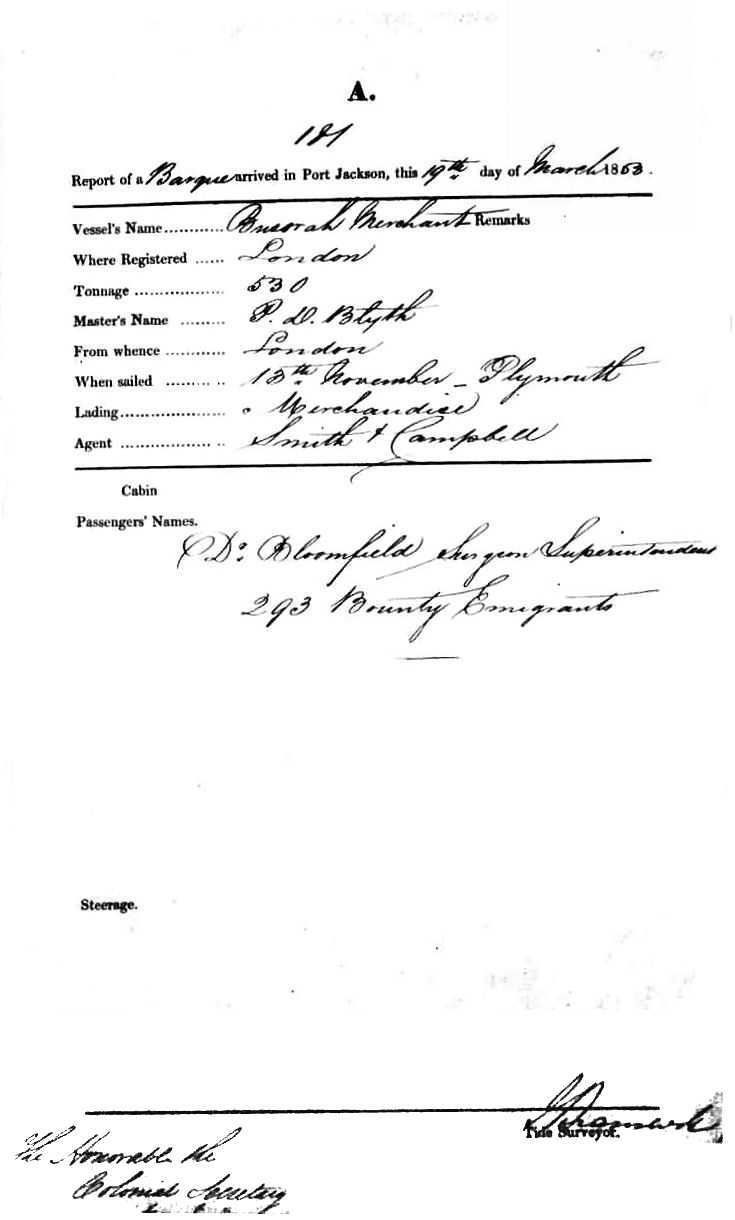 A.
181
Report of a Barque arrived in Port Jackson, this 19th day of March 1853.
Vessel's Name............ Busorah Merchant Remarks
Where Registered ...... London
Tonnage .................. 530
Master's Name ......... P. D. Blyth
From whence ............ London
When sailed ............ 13th November _ Plymouth
Lading..................... Merchandise
Agent ..................... Smith & Campbell
Cabin
Passengers' Names.
Dr. Bloomfield Surgeon Superintendent
293 Bounty Emigrants
Steerage.
Tide Surveyor.
The Honorable the
Colonial Secretary